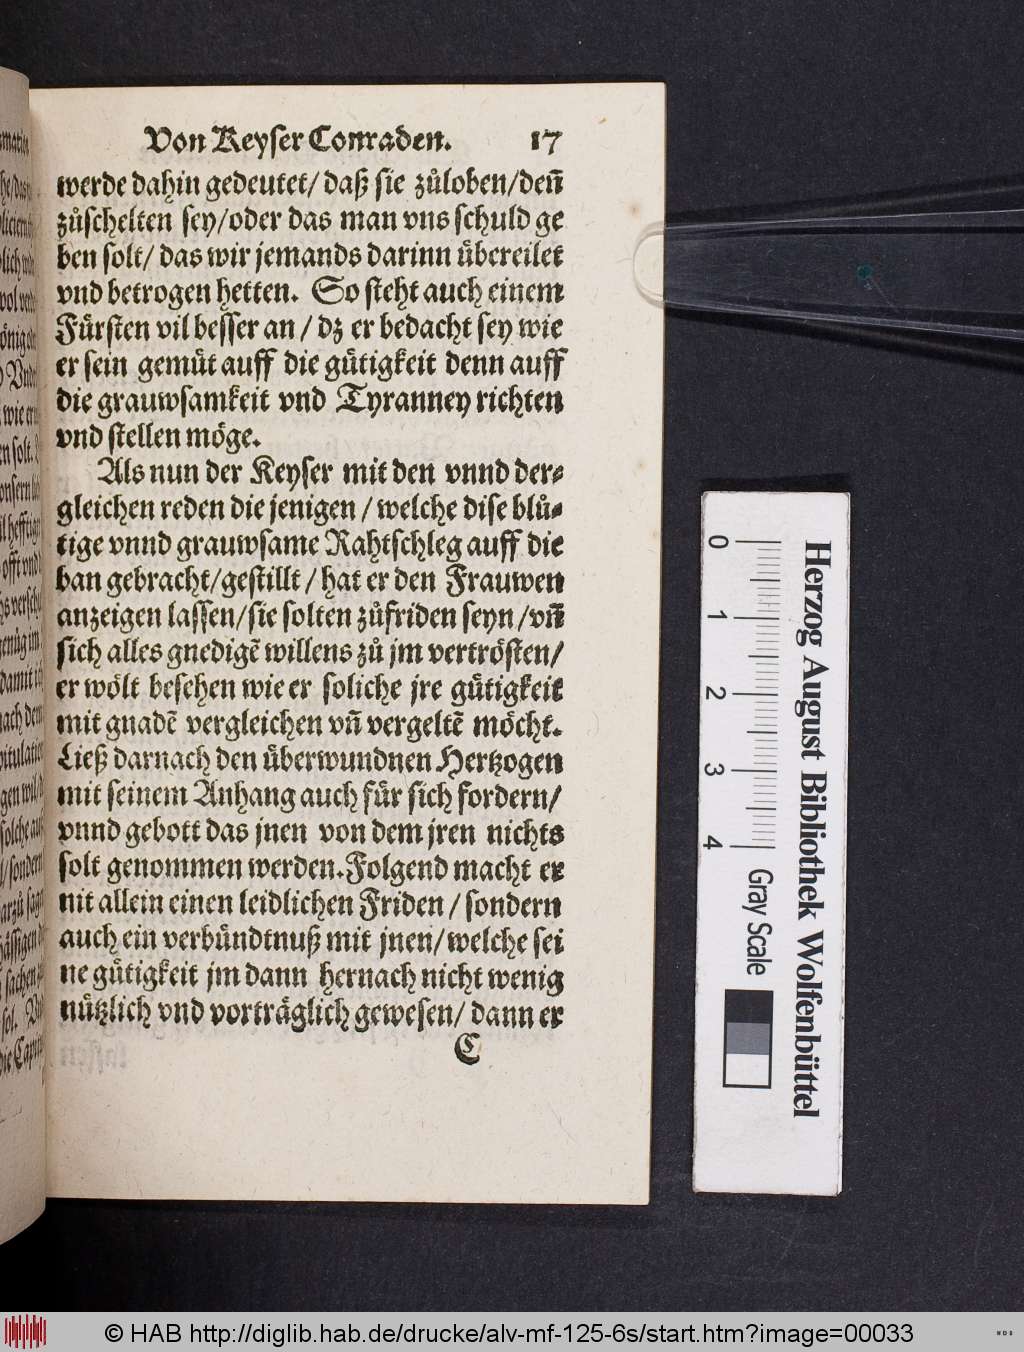 Von Keyser Conraden. 17
werde dahin gedeutet/ daß sie zůloben/deñ
zůschelten sey/oder das man vns schuld ge
ben solt/ das wir jemands darinn übereilet
vnd betrogen hetten. So steht auch einem
Fürsten vil besser an / dz er bedacht sey wie
er sein gemüt auff die gütigkeit denn auff
die grauwsamkeit vnd Tyranney richten
vnd stellen möge.
Als nun der Keyser mit den vnnd der⸗
gleichen reden die jenigen / welche dise blů⸗
tige vnnd grauwsame Rahtschleg auff die
ban gebracht/gestillt / hat er den Frauwen
anzeigen lassen/sie solten zůfriden seyn /vñ
sich alles gnedigẽ willens zů jm vertrösten/
er wölt besehen wie er soliche jre gütigkeit
mit gnadẽ vergleichen vñ vergeltẽ möcht.
Ließ darnach den überwundnen Hertzogen
mit seinem Anhang auch für sich fordern/
vnnd gebott das jnen von dem jren nichts
solt genommen werden. Folgend macht er
nit allein einen leidlichen Friden / sondern
auch ein verbündtnuß mit jnen/ welche sei
ne gütigkeit jm dann hernach nicht wenig
nützlich vnd vorträglich gewesen/ dann er
C
Herzog August Bibliothek Wolfenbüttel
0 1 2 3 4 Gray Scale
© HAB http://diglib.hab.de/drucke/alv-mf-125-6s/start.htm?image=00033